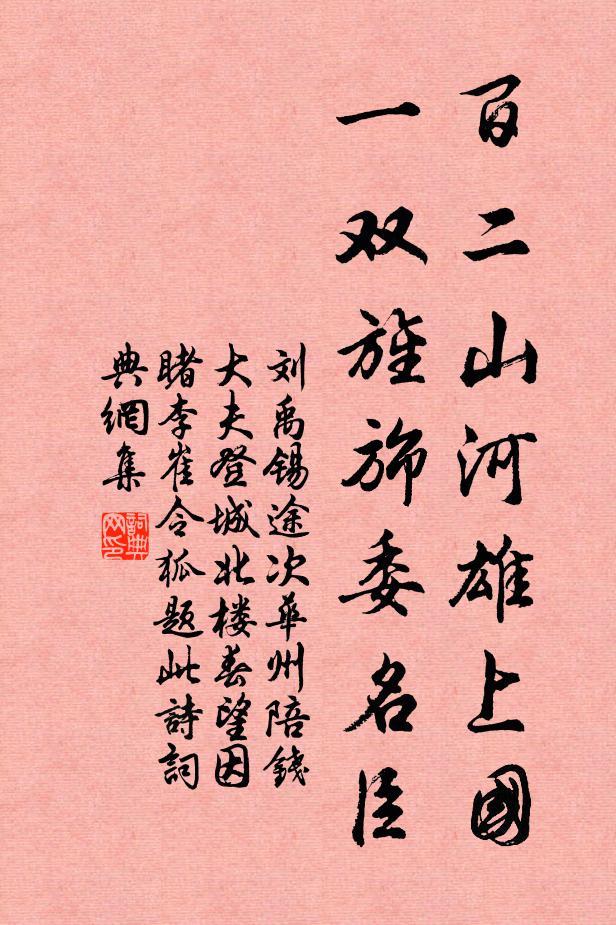 百二山河雄上國
一双旌旆委名臣
刘禹锡途次華州陪錢
大夫登城北楼春望因
睹李崔令狐题此詩詞
典網集
詞典網印